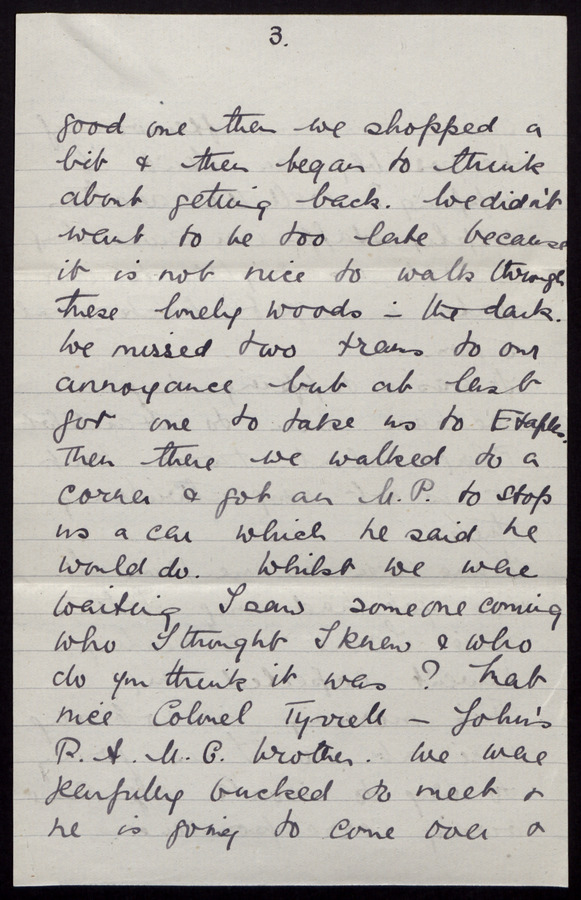 3.
good one then we shopped a
bit & then began to think
about getting back. We didn't
want to be too late because
it is not nice to walk through
these lonely woods in the dark.
We missed two trams to our
annoyance but at last
got one to take us to Etaples.
Then there we walked to a
corner & got an M.P. to stop
us a car which he said he
would do. Whilst we were
waiting I saw someone coming
who I thought I knew & who
do you think it was? That
nice Colonel Tyrrell – John's
R.A.M.C. brother. We were
fearfully bucked to meet &
he is going to come over &